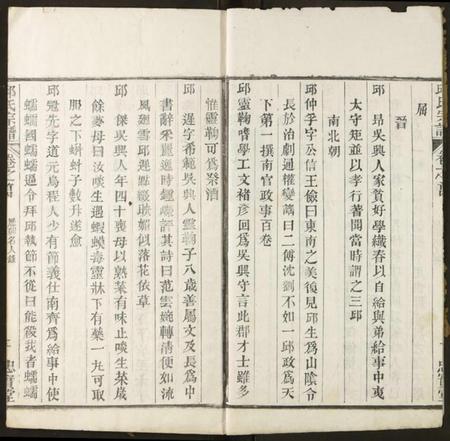 邱氏宗譜 卷之首
屬
晉
邱 昂吳興人家貧好學織舂以自給與弟給事中夷
太守矩並以孝行著聞當時謂之三邱
南北朝
邱仲孚字公信王儉曰東南之美復見邱生為山陰令
長於治劇適權變謠曰二傅沈劉不如一邱政為天
下第一撰南官政事百卷
邱靈鞠嗜學工文褚彥回為吳興守言此郡才士雖多
惟靈鞠可為祭酒
邱 遲字希範吳興人靈鞠子八歲善屬文及長為中
書辭采麗逋時鍾嶸評其詩曰范雲婉轉清便如流
風廻雪邱遲點綴映媚似落花依草
邱 傑吳興人年四十喪母以熟菜有味止啖生菜歲
餘夢母曰汝啖生遇蝦蟆毒靈牀下有藥一丸可取
服之下蝌蚪子數升遂愈
邱冠先字道元烏程人少有節義仕南齊為給事中使
蠕蠕國蠕蠕逼令拜邱執節不從曰能殺我者蠕蠕
邱氏宗譜 卷之首 歷朝名人錄 一 忠實堂